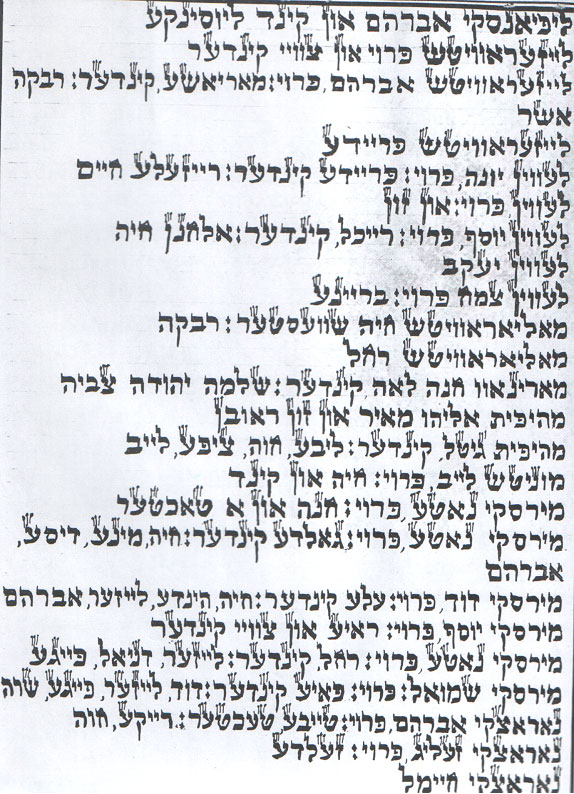 ליפיאנסקי אברהם און קינד ליוסינקע
לייזעראוויטש פרוי און צוויי קינדער
לייזעראוויטש אברהם, פרוי: מאריאשע, קינדער: רבקה
אשר
לייזעראוויטש פריידע
לעווין יונה, פרוי: פריידע קינדער: רייזעלע חיים
לעווין פרוי: און זון
לעווין יוסף, פרוי: רייכל, קינדער: אלחנן חיה
לעווין יעקב
לעווין צמח פרוי: בריינע
מאליאראוויטש חיה שוועסטער: רבקה
מאליאראוויטש רחל
מארינאוו חנה לאה, קינדער: שלמה יהודה צביה
מהיפית אליהו מאיר און זון ראובן
מהיפית גיטל, קינדער: ליבע, חוה, ציפע, לייב
מוניטש לייב, פרוי: חיה און קינד
מירסקי נאטע, פרוי: חנה און א טאכטער
מירסקי נאטע, פרוי: גאלדע קינדער: חיה, מינע, דיסע,
אברהם
מירסקי דוד, פרוי: עלע קינדער: חיה, הינדע, לייזער, אברהם
מירסקי יוסף, פרוי: ראיע און צוויי קינדער
מירסקי נאטע, פרוי: רחל, קינדער: לייזער, דניאל, פייגע
מירסקי שמואל: פרוי: פאיע קינדער: דוד, לייזער, פייגע, שיה
נאראצקי אברהם, פרוי: טייבע, טעכטער: רייקע, חוה
נאראצקי זעליג, פרוי: זעלדע
נאראצקי חיימל